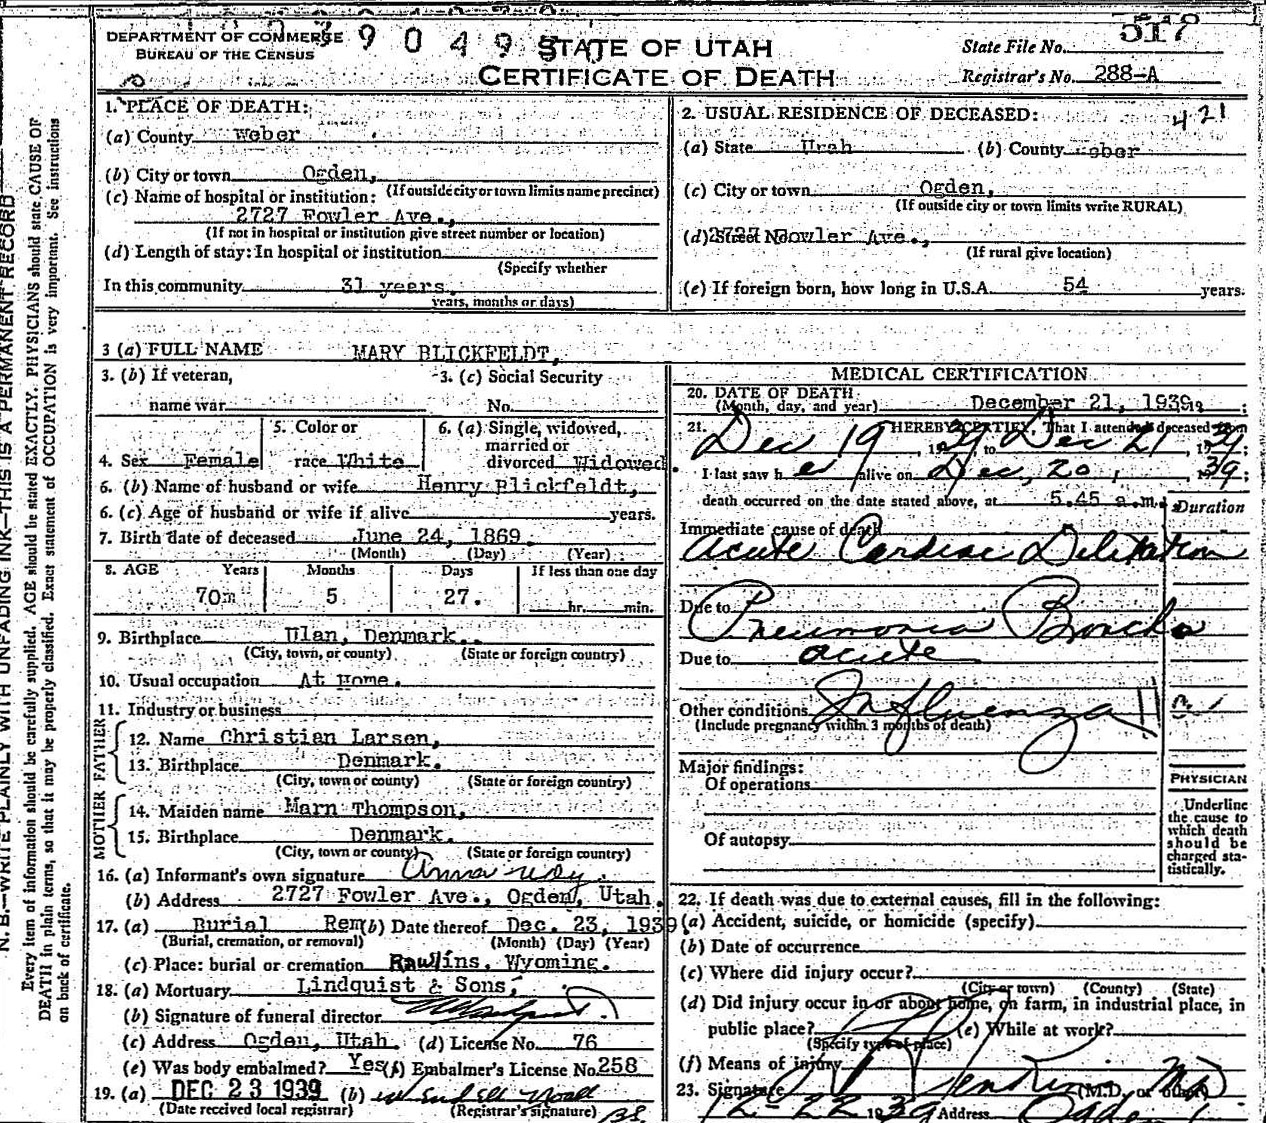 DEPARTMENT OF COMMERCE
BUREAU OF THE CENSUS
STATE OF UTAH
CERTIFICATE OF DEATH
State File No. 517
Registrar's No. 288-A
N. B.—WRITE PLAINLY WITH UNFADING INK—THIS IS A PERMANENT RECORD
Every item of information should be carefully supplied. AGE should be stated EXACTLY. PHYSICIANS should state CAUSE OF
DEATH in plain terms, so that it may be properly classified. Exact statement of OCCUPATION is very important. See instructions
on back of certificate.
1. PLACE OF DEATH:
(a) County Weber
(b) City or town Ogden,
(If outside city or town limits name precinct)
(c) Name of hospital or institution:
2727 Fowler Ave.,
(If not in hospital or institution give street number or location)
(d) Length of stay: In hospital or institution
(Specify whether
In this community 31 years.
years, months or days)
2. USUAL RESIDENCE OF DECEASED: 421
(a) State Utah (b) County Weber
(c) City or town Ogden,
(If outside city or town limits write RURAL)
(d) Street No. 2727 Fowler Ave.,
(If rural give location)
(e) If foreign born, how long in U.S.A. 54 years.
3 (a) FULL NAME MARY BLICKFELDT,
3. (b) If veteran,
name war
3. (c) Social Security
No.
4. Sex Female
5. Color or
race White
6. (a) Single, widowed,
married or
divorced Widowed.
6. (b) Name of husband or wife Henry Blickfeldt,
6. (c) Age of husband or wife if alive years.
7. Birth date of deceased June 24, 1869.
(Month) (Day) (Year)
8. AGE Years Months Days If less than one day
70 5 27. hr. min.
9. Birthplace Ulan, Denmark.
(City, town, or county) (State or foreign country)
10. Usual occupation At Home.
11. Industry or business
FATHER
12. Name Christian Larsen,
13. Birthplace Denmark.
(City, town or county) (State or foreign country)
MOTHER
14. Maiden name Marn Thompson,
15. Birthplace Denmark.
(City, town or county) (State or foreign country)
16. (a) Informant's own signature Anna
(b) Address 2727 Fowler Ave., Ogden, Utah.
17. (a) Burial Rem (b) Date thereof Dec. 23, 1939
(Burial, cremation, or removal) (Month) (Day) (Year)
(c) Place: burial or cremation Rawlins, Wyoming.
18. (a) Mortuary Lindquist & Sons,
(b) Signature of funeral director
(c) Address Ogden, Utah. (d) License No. 76
(e) Was body embalmed? Yes (f) Embalmer's License No. 258
19. (a) DEC 23 1939 (b)
(Date received local registrar) (Registrar's signature)
MEDICAL CERTIFICATION
20. DATE OF DEATH
(Month, day, and year) December 21, 1939
21. I HEREBY CERTIFY, That I attended deceased from
Dec 19, 1939, to Dec 21, 1939;
I last saw her alive on Dec, 20, 1939;
death occurred on the date stated above, at 5.45 a.m.
Duration
Immediate cause of death
Acute Cardiac Dilitation
Due to Pneumonia Broncho
Due to acute
Other conditions Influenza
(Include pregnancy within 3 months of death)
Major findings:
Of operations
Of autopsy
PHYSICIAN
Underline
the cause to
which death
should be
charged sta-
tistically.
22. If death was due to external causes, fill in the following:
(a) Accident, suicide, or homicide (specify)
(b) Date of occurrence
(c) Where did injury occur?
(City or town) (County) (State)
(d) Did injury occur in or about home, on farm, in industrial place, in
public place? (e) While at work?
(Specify type of place)
(f) Means of injury
23. Signature Jenkins (M.D. or other) MD
12-22 1939 Address Ogden